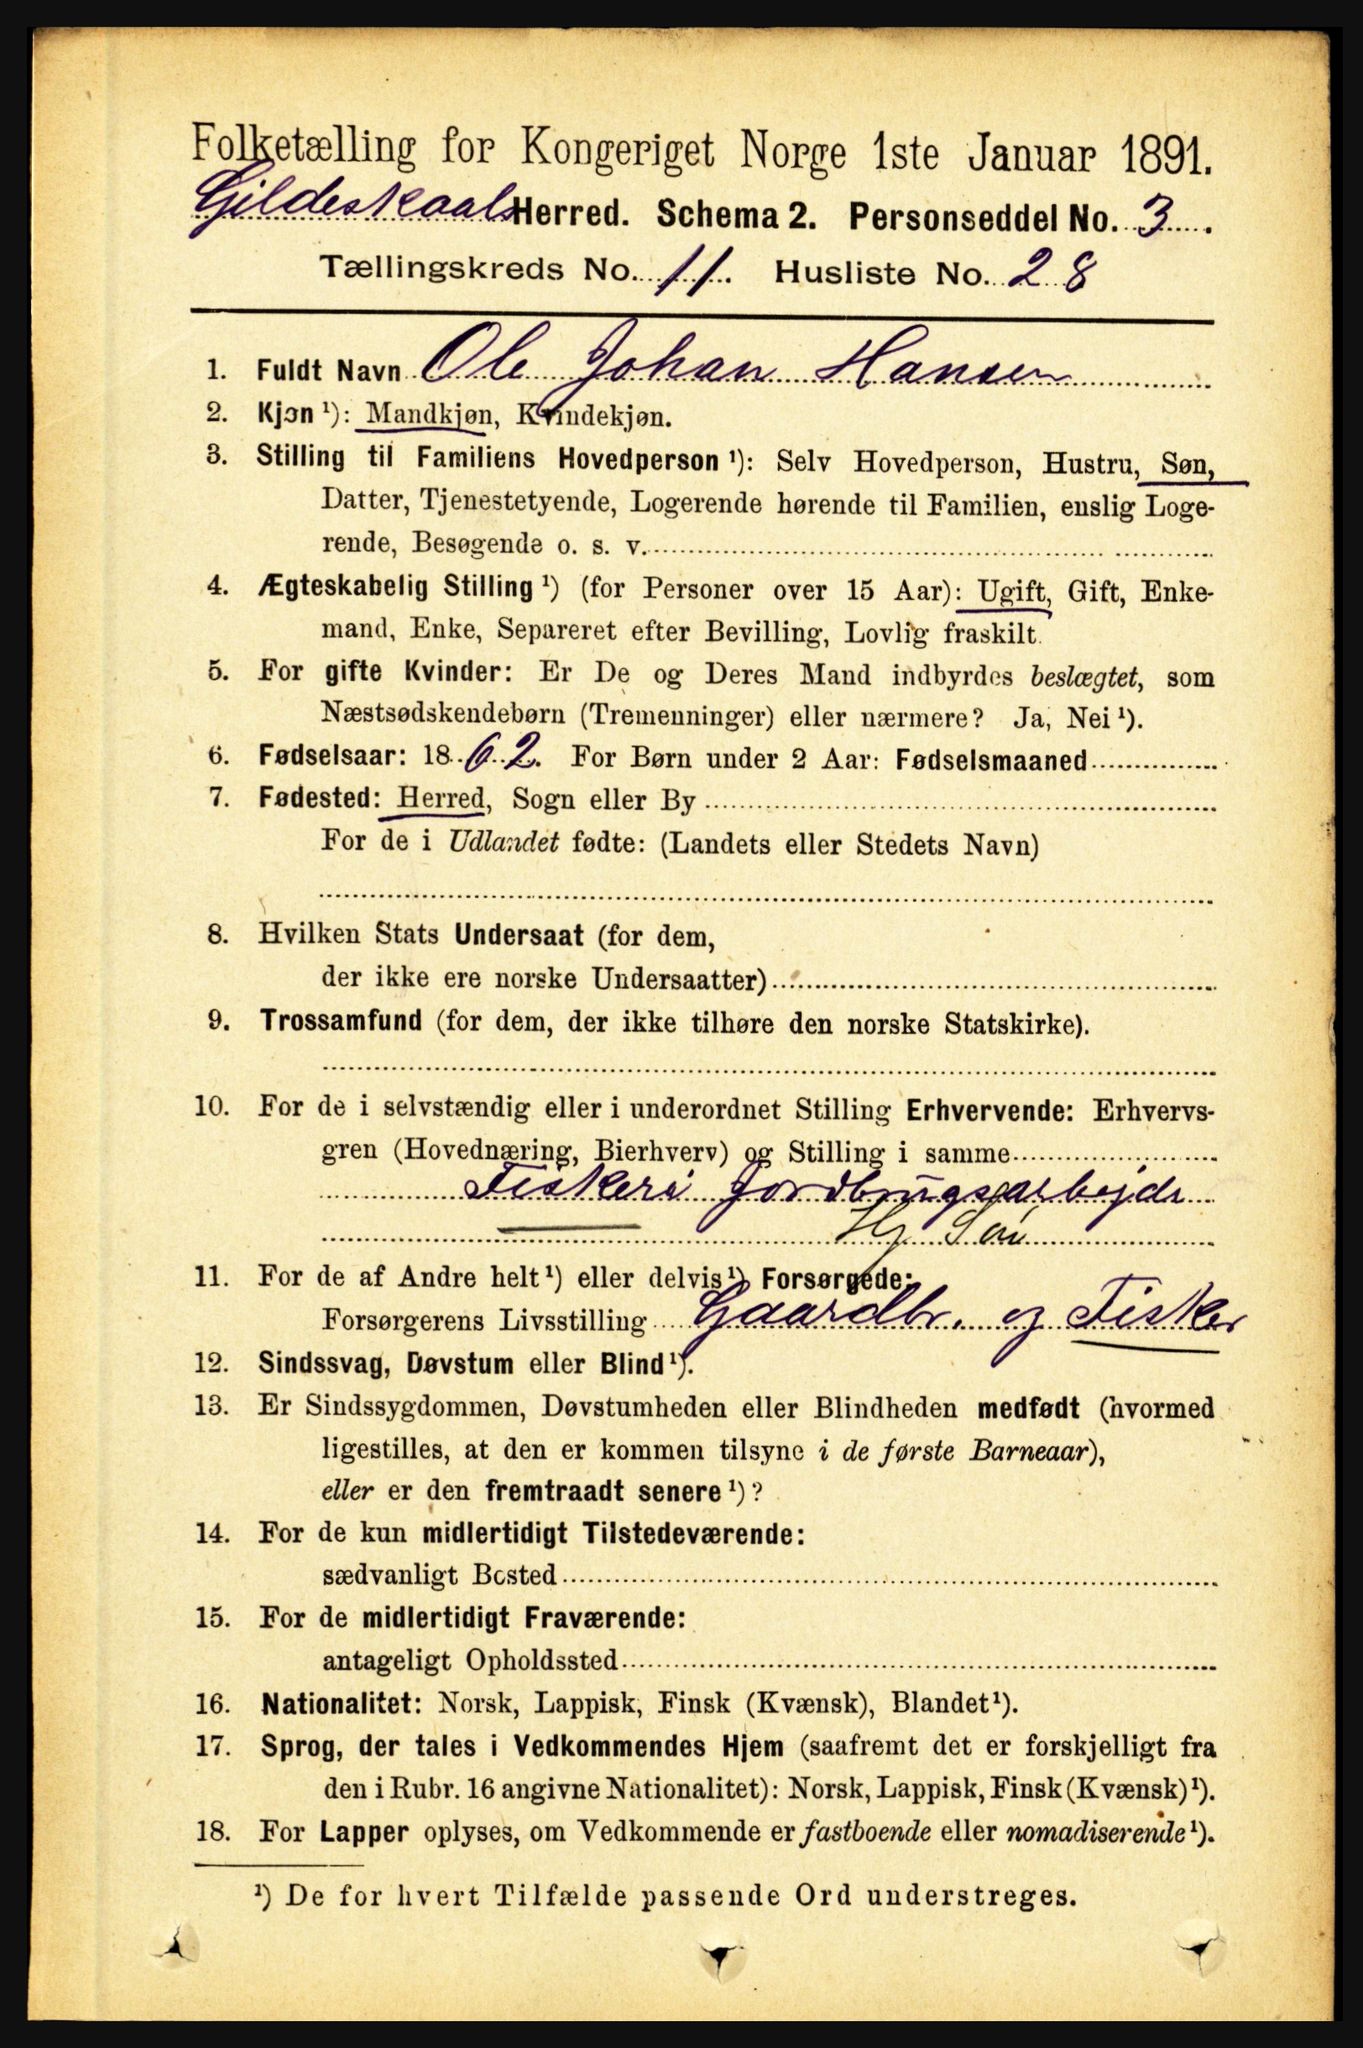 Folketælling for Kongeriget Norge 1ste Januar 1891.
Gildeskaals Herred. Schema 2. Personseddel No. 3.
Tællingskreds No. 11. Husliste No. 28
1. Fuldt Navn Ole Johan Hansen
2. Kjøn ¹): Mandkjøn, Kvindekjøn.
3. Stilling til Familiens Hovedperson ¹): Selv Hovedperson, Hustru, Søn,
Datter, Tjenestetyende, Logerende hørende til Familien, enslig Loge-
rende, Besøgende o. s. v.
4. Ægteskabelig Stilling ¹) (for Personer over 15 Aar): Ugift, Gift, Enke-
mand, Enke, Separeret efter Bevilling, Lovlig fraskilt.
5. For gifte Kvinder: Er De og Deres Mand indbyrdes beslægtet, som
Næstsødskendebørn (Tremenninger) eller nærmere? Ja, Nei ¹).
6. Fødselsaar: 1862. For Børn under 2 Aar: Fødselsmaaned
7. Fødested: Herred, Sogn eller By
For de i Udlandet fødte: (Landets eller Stedets Navn)
8. Hvilken Stats Undersaat (for dem,
der ikke ere norske Undersaatter)
9. Trossamfund (for dem, der ikke tilhøre den norske Statskirke).
10. For de i selvstændig eller i underordnet Stilling Erhvervende: Erhvervs-
gren (Hovednæring, Bierhverv) og Stilling i samme
Fiskeri Jordbrugsarbejde
Hj Søn
11. For de af Andre helt ¹) eller delvis ¹) Forsørgede:
Forsørgerens Livsstilling Gaardbr. og Fisker
12. Sindssvag, Døvstum eller Blind ¹).
13. Er Sindssygdommen, Døvstumheden eller Blindheden medfødt (hvormed
ligestilles, at den er kommen tilsyne i de første Barneaar),
eller er den fremtraadt senere ¹)?
14. For de kun midlertidigt Tilstedeværende:
sædvanligt Bosted
15. For de midlertidigt Fraværende:
antageligt Opholdssted
16. Nationalitet: Norsk, Lappisk, Finsk (Kvænsk), Blandet ¹).
17. Sprog, der tales i Vedkommendes Hjem (saafremt det er forskjelligt fra
den i Rubr. 16 angivne Nationalitet): Norsk, Lappisk, Finsk (Kvænsk) ¹).
18. For Lapper oplyses, om Vedkommende er fastboende eller nomadiserende ¹).
¹) De for hvert Tilfælde passende Ord understreges.